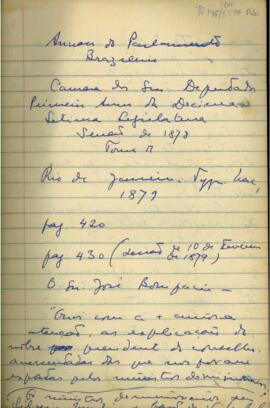 Annaes do Parlamento
Brazileiro
Camara dos Srs. Deputados
Primeiro Anno da Decima
Setima Legislatura
Sessão de 1878
Tomo II
Rio de Janeiro. Typ. Nac,
1879
pag. 420
pag 430 (sessão de 10 de Fevereiro
de 1879)
O Sr. José Bonifacio —
"Ouvi com a + anciosa
attenção, as explicações do
nobre presidente do conselho,
accrescentadas das que nos foram
pelos ministros
Os ministros